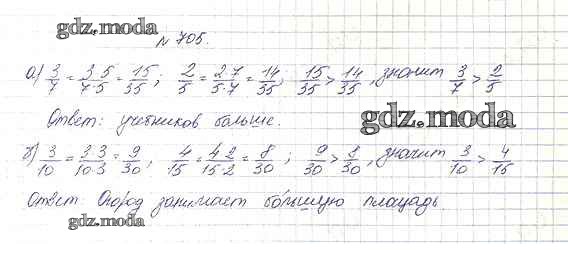 gdz.moda
№ 705.
а) 3/7 = 3·5/7·5 = 15/35; 2/5 = 2·7/5·7 = 14/35; 15/35 > 14/35, значит 3/7 > 2/5
Ответ: учебников больше.
gdz.moda
б) 3/10 = 3·3/10·3 = 9/30, 4/15 = 4·2/15·2 = 8/30; 9/30 > 8/30, значит 3/10 > 4/15
Ответ Огород занимает бо́льшую площадь.
gdz.moda